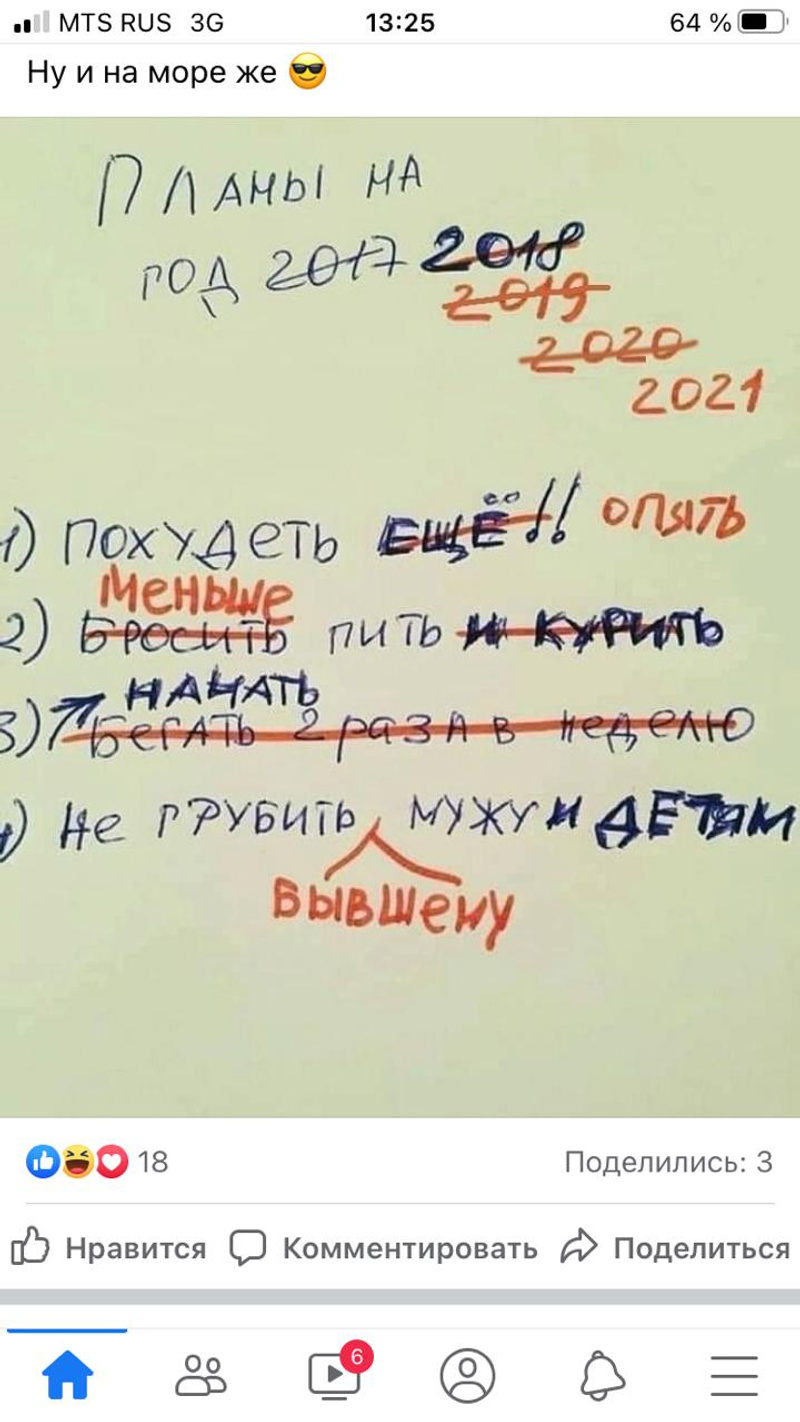 MTS RUS 3G 13:25 64 %
Ну и на море же 😎
Планы на
год 2017 2018
2019
2020
2021
1) Похудеть ЕЩЁ!! опять
Меньше
2) Бросить пить и курить
начать
3) Бегать 2 раза в неделю
4) Не грубить мужу и детям
бывшему
18 Поделились: 3
Нравится Комментировать Поделиться
6